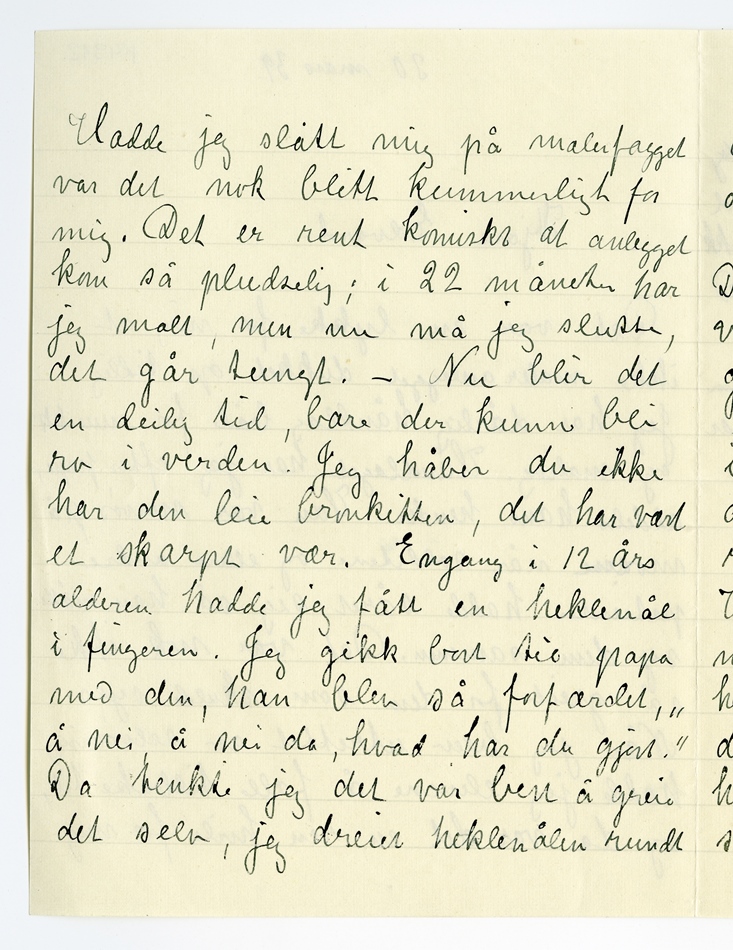 Hadde jeg slått mig på malerfagget
var det nok blitt kummerligt for
mig. Det er rent komiskt at anlegget
kom så pludselig; i 22 måneter har
jeg malt, men nu må jeg slutte,
det går tungt. – Nu blir det
en deilig tid, bare der kunn bli
ro i verden. Jeg håber du ikke
har den leie bronkitten, det har vært
et skarpt vær. Engang i 12 års
alderen hadde jeg fått en heklenål
i fingeren. Jeg gikk bort til papa
med den, han blev så forfærdet, „
å nei, å nei da, hvad har du gjort."
Da tenkte jeg det var best å greie
det selv, jeg dreiet heklenålen rundt